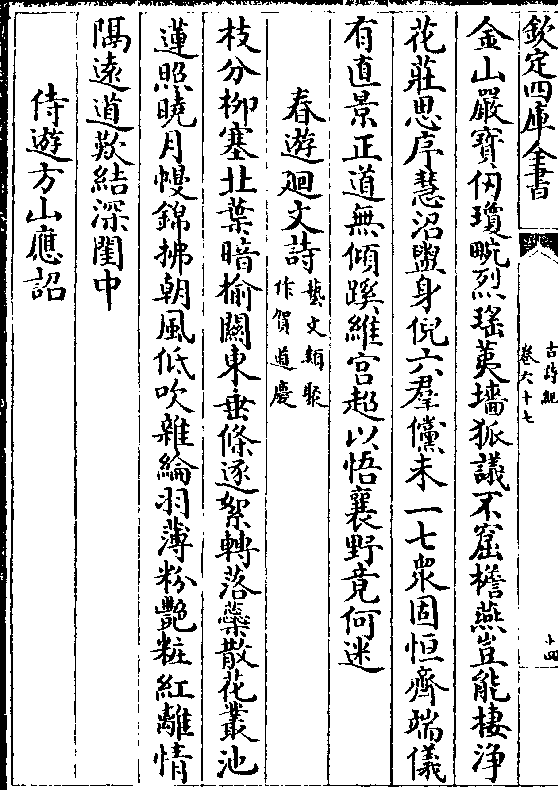 欽定四庫全書
古詩紀
卷六十七
十四
金山嚴寶仞瓊畹烈瑤荑墻狐議不窟櫩燕豈能棲浄
花莊思序慧沼盥身倪六羣儻未一七衆固恒齊瑞儀
有直景正道無傾蹊維宫超以悟襄野竟何迷
春遊廻文詩藝文類聚
作賀道慶
枝分柳塞北葉暗榆關東垂條逐絮轉落蘂散花叢池
蓮照曉月幔錦拂朝風低吹雜綸羽薄粉艷粧紅離情
隔遠道歎結深閨中
侍遊方山應詔